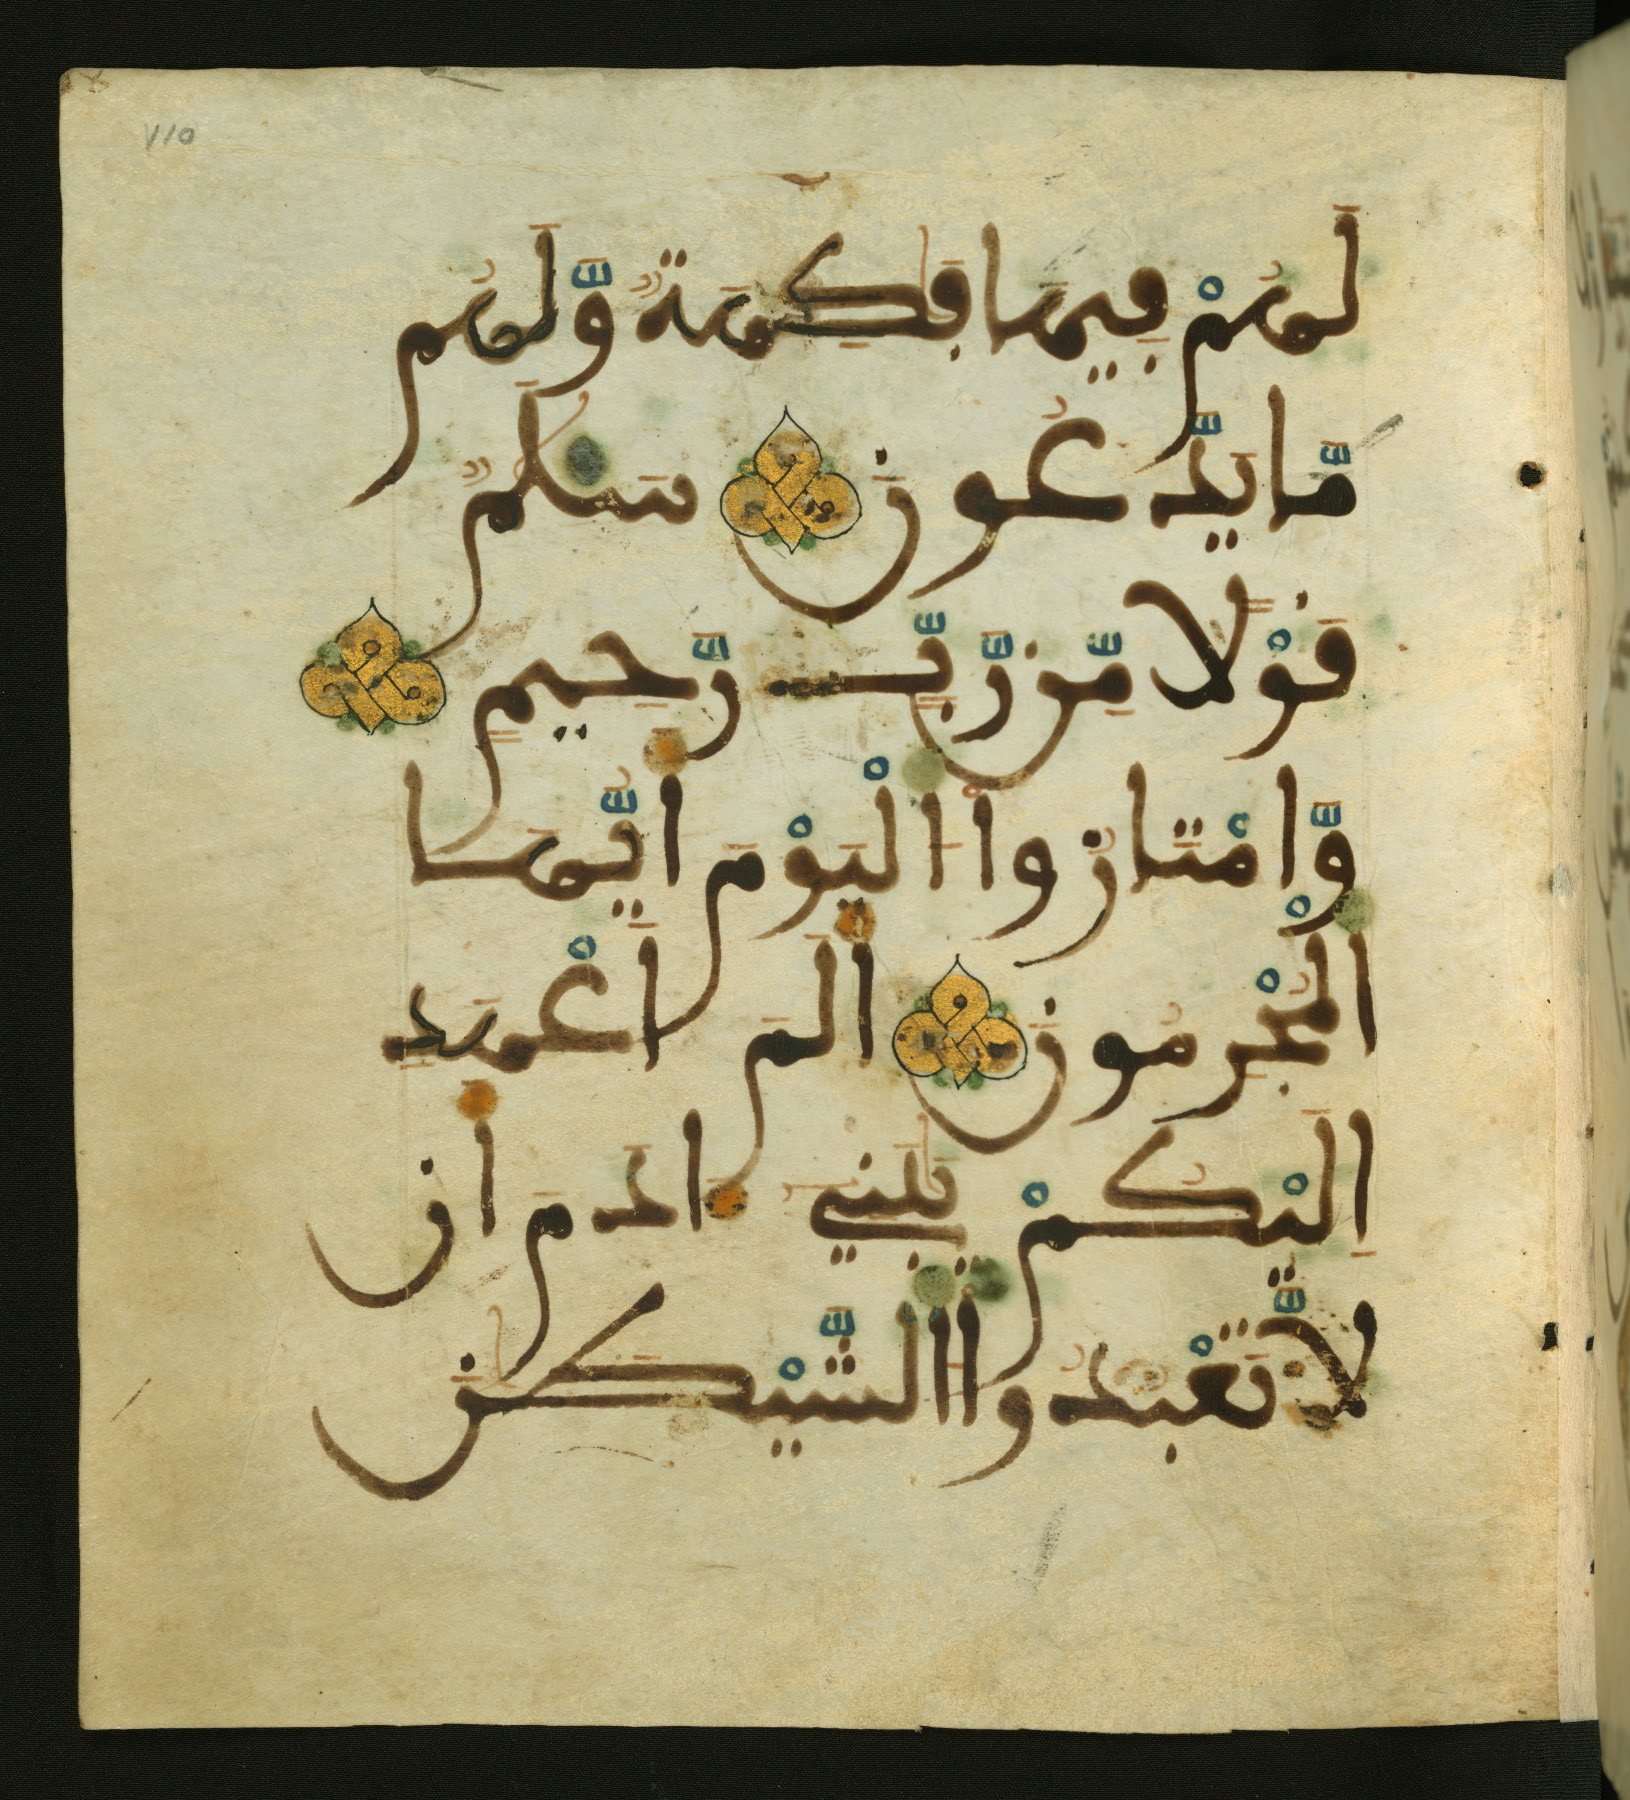 ٧١٥
لَهُمْ فِيهَا فَٰكِهَةٌ وَّلَهُم
مَّا يَدَّعُونَ سَلَٰمٌ
قَوْلًا مِّن رَّبٍّ رَّحِيمٍ
وَّامْتَٰزُوا الْيَوْمَ أَيُّهَا
الْمُجْرِمُونَ أَلَمَ اعْهَدِ
اِلَيْكُمْ يَٰبَنِےٓ ءَادَمَ أَن
لَّا تَعْبُدُوا الشَّيْطَٰنَ